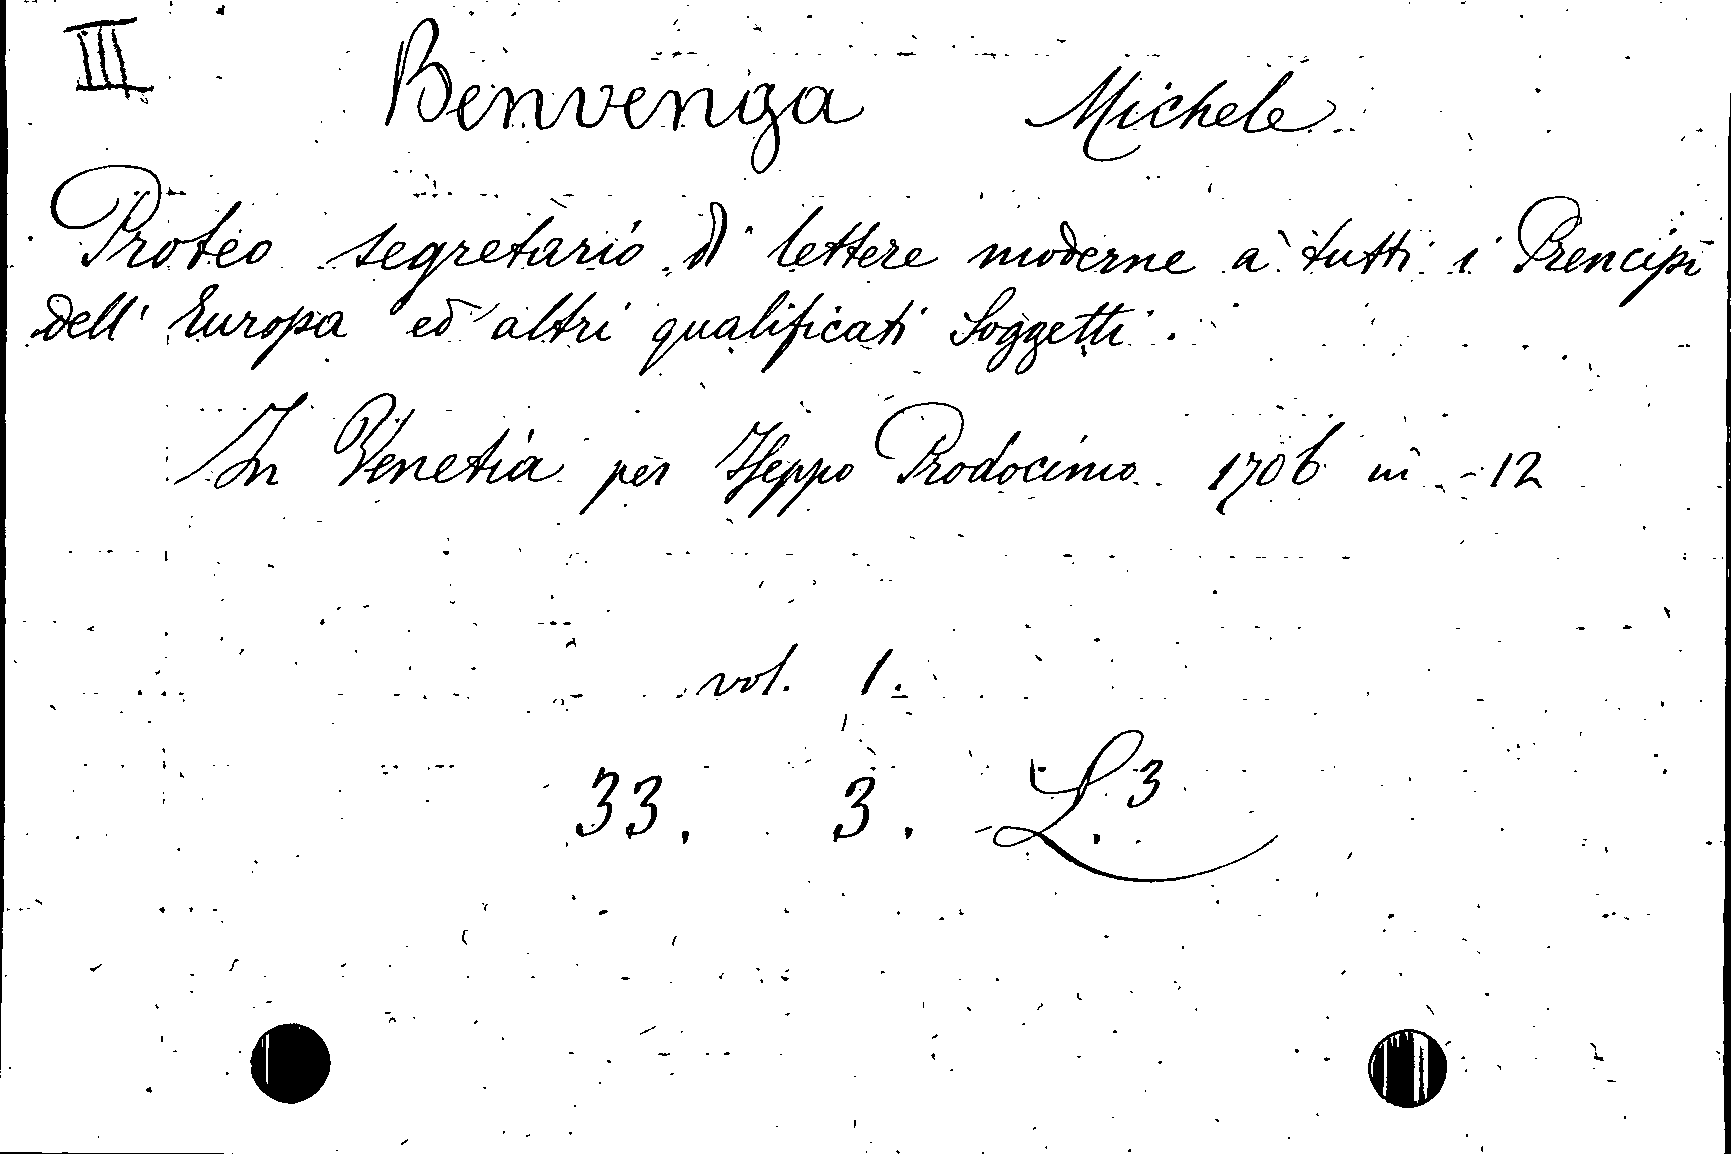 III Benvenga Michele
Proteo segretario di lettere moderne a tutti i Prencipi
dell' Europa ed altri qualificati Soggetti.
In Venetia per Iseppo Prodocimo 1706 in - 12
vol. 1.
33. 3. L.3